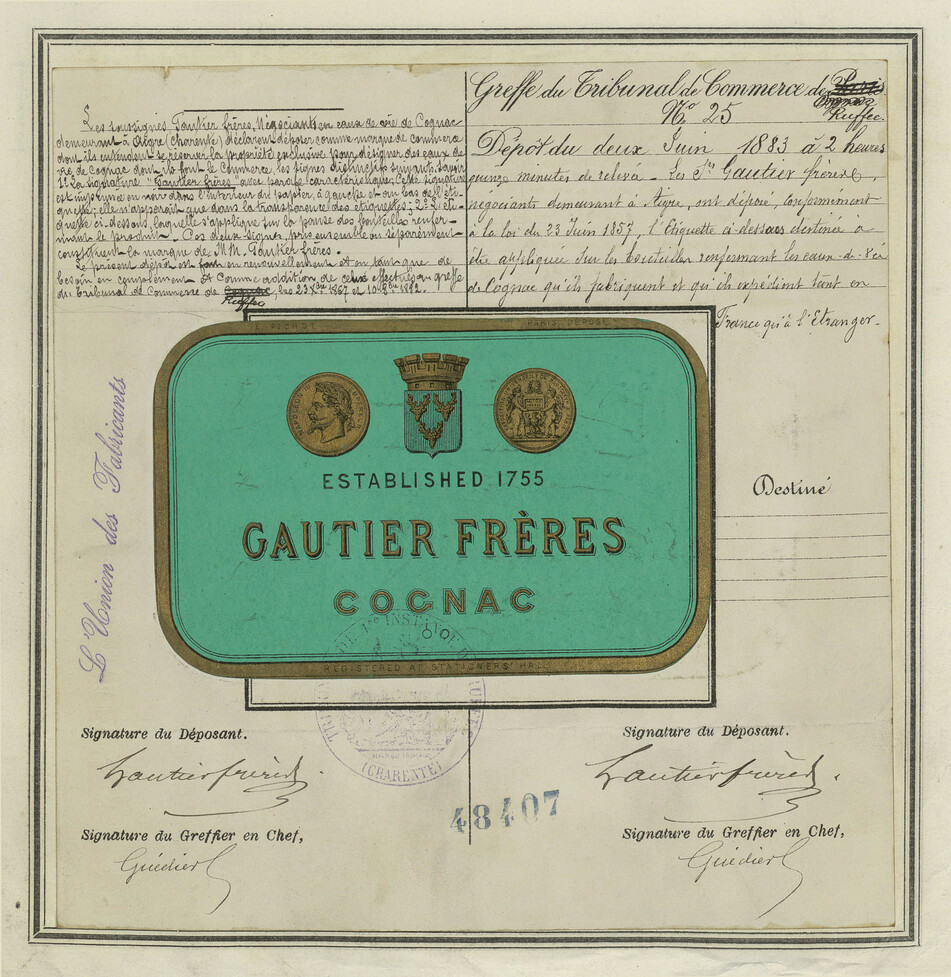 Les soussignés, Gautier frères, Négociants en eaux de vie de Cognac
demeurant à Aigre (Charente) déclarent déposer comme marque de commerce
dont ils entendent se réserver la propriété exclusive pour désigner des eaux de
vie de Cognac dont ils font le commerce, les signes distinctifs suivants, savoir
1º La signature "Gautier frères" avec parafe caractéristique; Cette signature
est imprimée en noir dans l'intérieur du papier, à gauche et au bas de l'éti-
quette; elle n'apparait que dans la transparence des étiquettes; 2º L'éti-
quette ci-dessous, laquelle s'applique sur la panse des bouteilles renfer-
mant le produit. Ces deux signes, pris ensemble ou séparément
constituent la marque de M.M. Gautier frères.
Le présent dépôt est fait en renouvellement et en tant que de
besoin en complément et comme addition de ceux effectués au greffe
du Tribunal de Commerce de
Ruffec, les 23 Xbre 1867 et 10 1882.
Greffe du Tribunal de Commerce de Paris
Ruffec.
No 25
Dépôt du deux Juin 1883 à 2 heures
quinze minutes de relevée. Les Srs Gautier frères,
négociants demeurant à Aigre, ont déposé, conformément
à la loi du 23 Juin 1857, l'Etiquette ci-dessous destinée à
être appliquée sur les bouteilles renfermant les eaux-de-Vie
de Cognac qu'ils fabriquent et qu'ils expédient tant en
France qu'à l'Etranger.
PARIS, DEPOSE
ESTABLISHED 1755
GAUTIER FRÈRES
COGNAC
REGISTERED AT STATIONERS' HALL
L'Union des Fabricants
Destiné
TRIBUNAL DE 1re INSTANCE DE RUFFEC
(CHARENTE)
Signature du Déposant.
Gautier frères
Signature du Greffier en Chef,
Guédier
48407
Signature du Déposant.
Gautier frères
Signature du Greffier en Chef,
Guédier